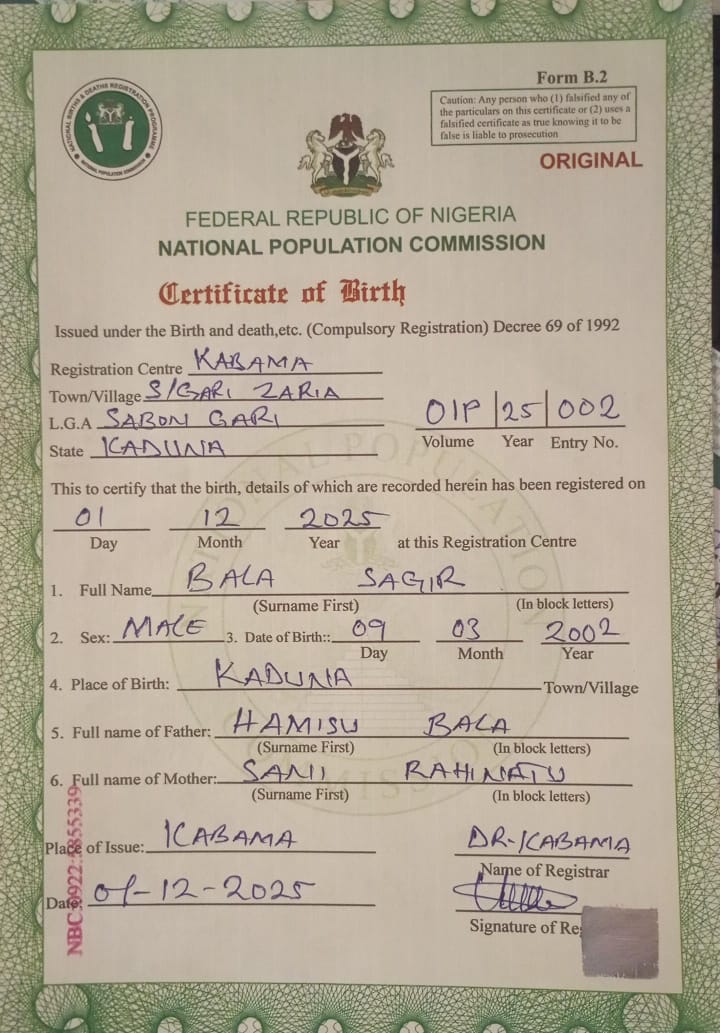 Form B.2
Caution: Any person who (1) falsified any of
the particulars on this certificate or (2) uses a
falsified certificate as true knowing it to be
false is liable to prosecution
ORIGINAL
NATIONAL BIRTHS & DEATHS REGISTRATION PROGRAMME
NATIONAL POPULATION COMMISSION
FEDERAL REPUBLIC OF NIGERIA
NATIONAL POPULATION COMMISSION
Certificate of Birth
Issued under the Birth and death,etc. (Compulsory Registration) Decree 69 of 1992
Registration Centre KABAMA
Town/Village S/GARI ZARIA
L.G.A SABON GARI
State KADUNA
01P 25 002
Volume Year Entry No.
This to certify that the birth, details of which are recorded herein has been registered on
01 12 2025
Day Month Year at this Registration Centre
1. Full Name BALA SAGIR
(Surname First) (In block letters)
2. Sex: MALE 3. Date of Birth:: 09 03 2002
Day Month Year
4. Place of Birth: KADUNA Town/Village
5. Full name of Father: HAMISU BALA
(Surname First) (In block letters)
6. Full name of Mother: SANI RAHINATU
(Surname First) (In block letters)
Place of Issue: KABAMA
DR-KABAMA
Name of Registrar
Date: 01-12-2025
Signature of Re
NATIONAL POPULATION COMMISSION